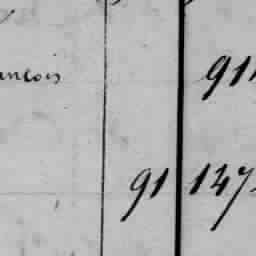 ancois 91
91 147